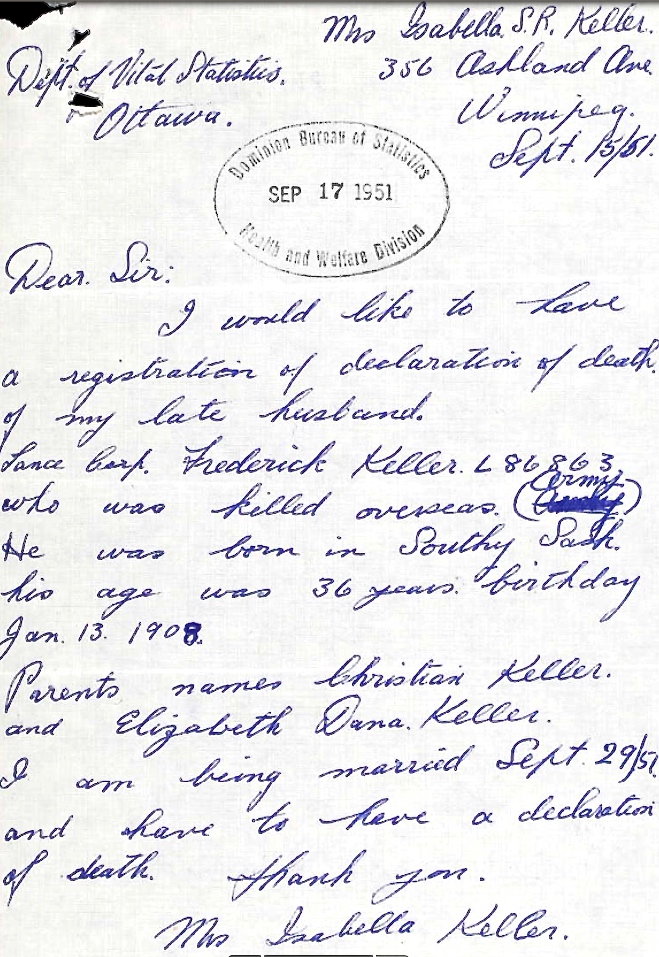 Mrs Isabella. S.R. Keller.
Dept. of Vital Statistics.
356 Ashland Ave.
Ottawa.
Winnipeg.
Sept. 15/51.
Dominion Bureau of Statistics
SEP 17 1951
Health and Welfare Division
Dear. Sir:
I would like to have
a registration of declaration of death.
of my late husband.
Lance Corp. Frederick Keller. L 86863
who was killed overseas. (Army)
He was born in Southy Sask.
his age was 36 years. birthday
Jan. 13. 1908.
Parents names Christian Keller.
and Elizabeth Dana. Keller.
I am being married Sept. 29/51
and have to have a declaration
of death. thank you.
Mrs Isabella Keller.